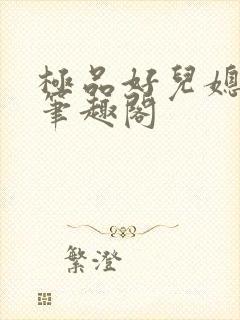 極品好兒媳
筆趣閣
繁澄